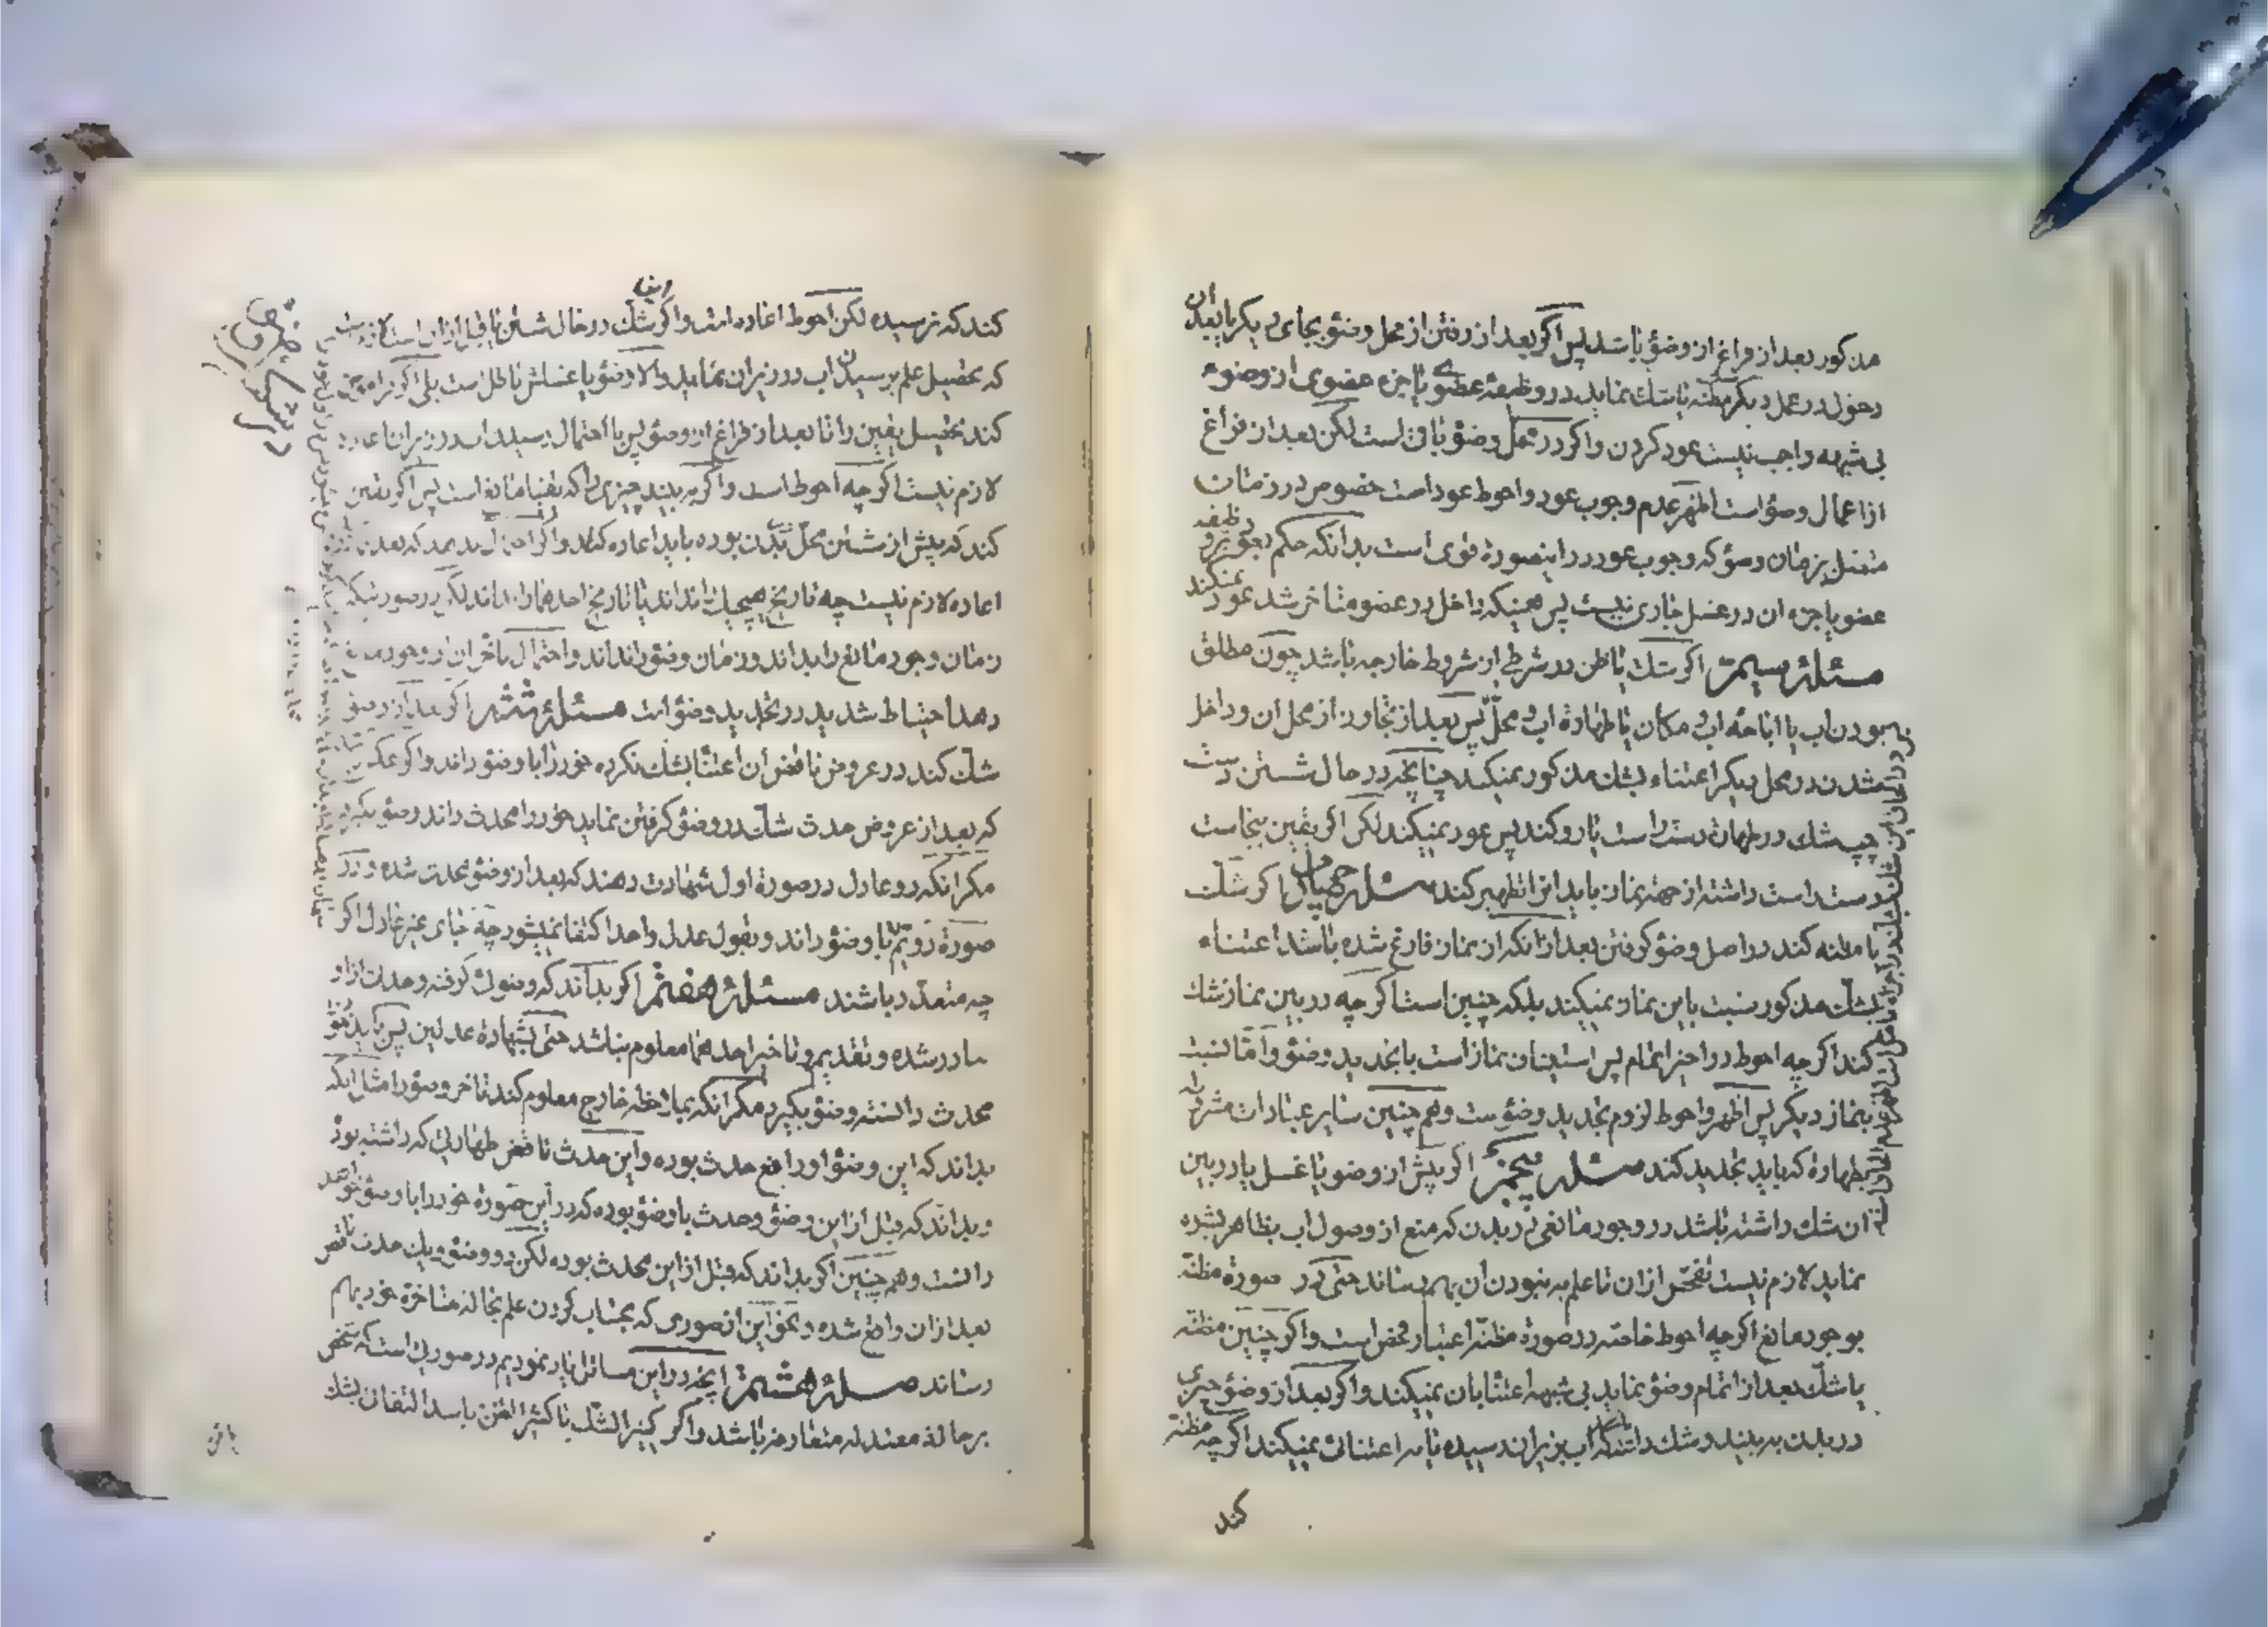 مذکور بعد از فراغ از وضؤ باشد پس اگر بعد از رفتن از محل وضؤ بجای دیگر یا بعد از ان
دخول در عمل دیگر مظنه یا شك نماید در وظیفهٔ عضوی یا جزء عضوی از وضوء
بی شبهه واجب نیست عود کردن و اگر در محل وضؤ باقی است لکن بعد از فراغ
از اعمال وضؤ است اظهر عدم وجوب عود و احوط عود است خصوص در زمان
متصل بزمان وضؤ که وجوب عود در اینصورة قوی است بدانکه حکم وظیفه
عضو یا جزء ان در غسل جاری نیست پس همینکه داخل در عضو متاخر شد عود نمیکند
مسئلۀ سیم اگر شك یا ظن در شرطی از شروط خارجه باشد چون مطلق
بودن اب یا اباحه اب و مکان یا طهارة اب و محل پس بعد از تجاوز از محل ان و داخل
شدن در محل دیگر اعتناء بشك مذکور نمیکند چنانچه در حال شستن دست
چپ شك در طهارة دست راست یا رو کند پس عود نمیکند لکن اگر یقین بنجاست
دست راست داشته از جهة نماز باید انرا تطهیر کند مسئلۀ چهارم اگر شك
یا مظنه کند در اصل وضؤ گرفتن بعد از انکه از نماز فارغ شده باشد اعتناء
بشك مذکور نسبت باین نماز نمیکند بلکه چنین است اگر چه در بین نماز شك
کند اگر چه احوط در اخیر اتمام پس استیناف نماز است با تجدید وضؤ و امّا نسبت
بنماز دیگر پس اظهر و احوط لزوم تجدید وضؤست و هم چنین سایر عبادات مشروطه
بطهارة که باید تجدید کند مسئلۀ پنجم اگر پیش از وضو یا غسل یا در بین
ان شك داشته باشد در وجود مانعی در بدن که منع از وصول اب بظاهر بشره
نماید لازم نیست تفحّص از ان تا علم به نبودن ان بهم رساند حتی در صورة مظنّه
بوجود مانع اگر چه احوط خاصّه در صورة مظنّه اعتبار فحص است و اگر چنین مظنّه
یا شك بعد از اتمام وضؤ نماید بی شبهه اعتنا بان نمیکند و اگر بعد از وضؤ چیزی
در بدن به بیند و شك داشته باشد که اب بزیر ان رسیده یا نه اعتنائی نمیکند اگر چه مظنّه
کند
کند که نرسیده لکن احوط اعاده است و اگر شك در حال شستن یا قبل از ان است لازم است
که تحصیل علم برسیدن اب در زیر ان نماید و الا وضؤ یا غسلش باطل است بلی اگر فراموش
کند تحصیل یقین را تا بعد از فراغ از وضؤ پس با احتمال رسیدن اب در زیر ان اعاده
لازم نیست اگر چه احوط است و اگر به بیند چیزی را که یقینا مانع است پس اگر یقین
کند که پیش از شستن محلّ در بدن بوده باید اعاده کند و اگر احتمال بدهد که بعد
اعاده لازم نیست چه تاریخ هیچیك را نداند یا تاریخ احدهما را بداند لکن در صورتیکه
زمان وجود مانع را بداند و زمان وضؤ را نداند و احتمال تأخر ان از وجود مانع
دهد احتیاط شدید در تجدید وضؤ است مسئلۀ ششم اگر بعد از وضؤ
شك کند در عروض ناقض ان اعتنا بشك نکرده خود را با وضؤ داند و اگر عکس
که بعد از عروض حدث شك در وضؤ گرفتن نماید خود را محدث داند وضؤ بگیرد
مگر انکه دو عادل در صورة اول شهادت دهند که بعد از وضؤ محدث شده و در
صورة دویّم با وضؤ داند و بقول عدل واحد اکتفا نمیشود چه جای غیر عادل اگر
چه متعدّد باشند مسئلۀ هفتم اگر بداند که وضوئی گرفته و حدث از او
صادر شده و تقدیم و تاخیر احدهما معلوم نباشد حتی بشهادة عدلین پس باید خود
محدث دانسته وضؤ بگیرد مگر انکه بملاحظه خارج معلوم کند تاخر وضؤ را مثل انکه
بداند که این وضؤ او رافع حدث بوده و این حدث ناقض طهارتی که داشته بود
و بداند که قبل از این وضؤ و حدث با وضؤ بوده که در این صورة خود را با وضؤ خواهد
دانست و هم چنین اگر بداند که قبل از این محدث بوده لکن دو وضؤ و یك حدث ناقض
بعد از ان واقع شده و نحو این از صوری که بحساب کردن علم بحالة متاخرة خود بهم
رساند مسئلۀ هشتم انچه در این مسائل یاد نمودیم در صورتی است که شخص
بر حالة معتدله متعارفه باشد و اگر کثیر الشك یا کثیر الظن باشد التفات بشك